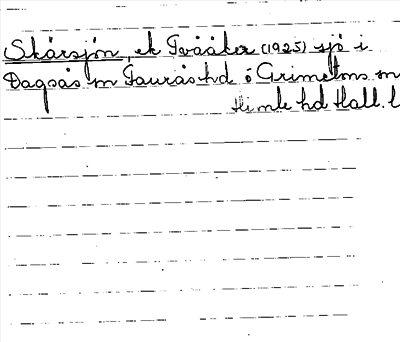 Skärsjön, ek Tvååker (1925) sjö i
Dagsås sn Faurås hd o Grimetons sn
Himle hd Hall. l